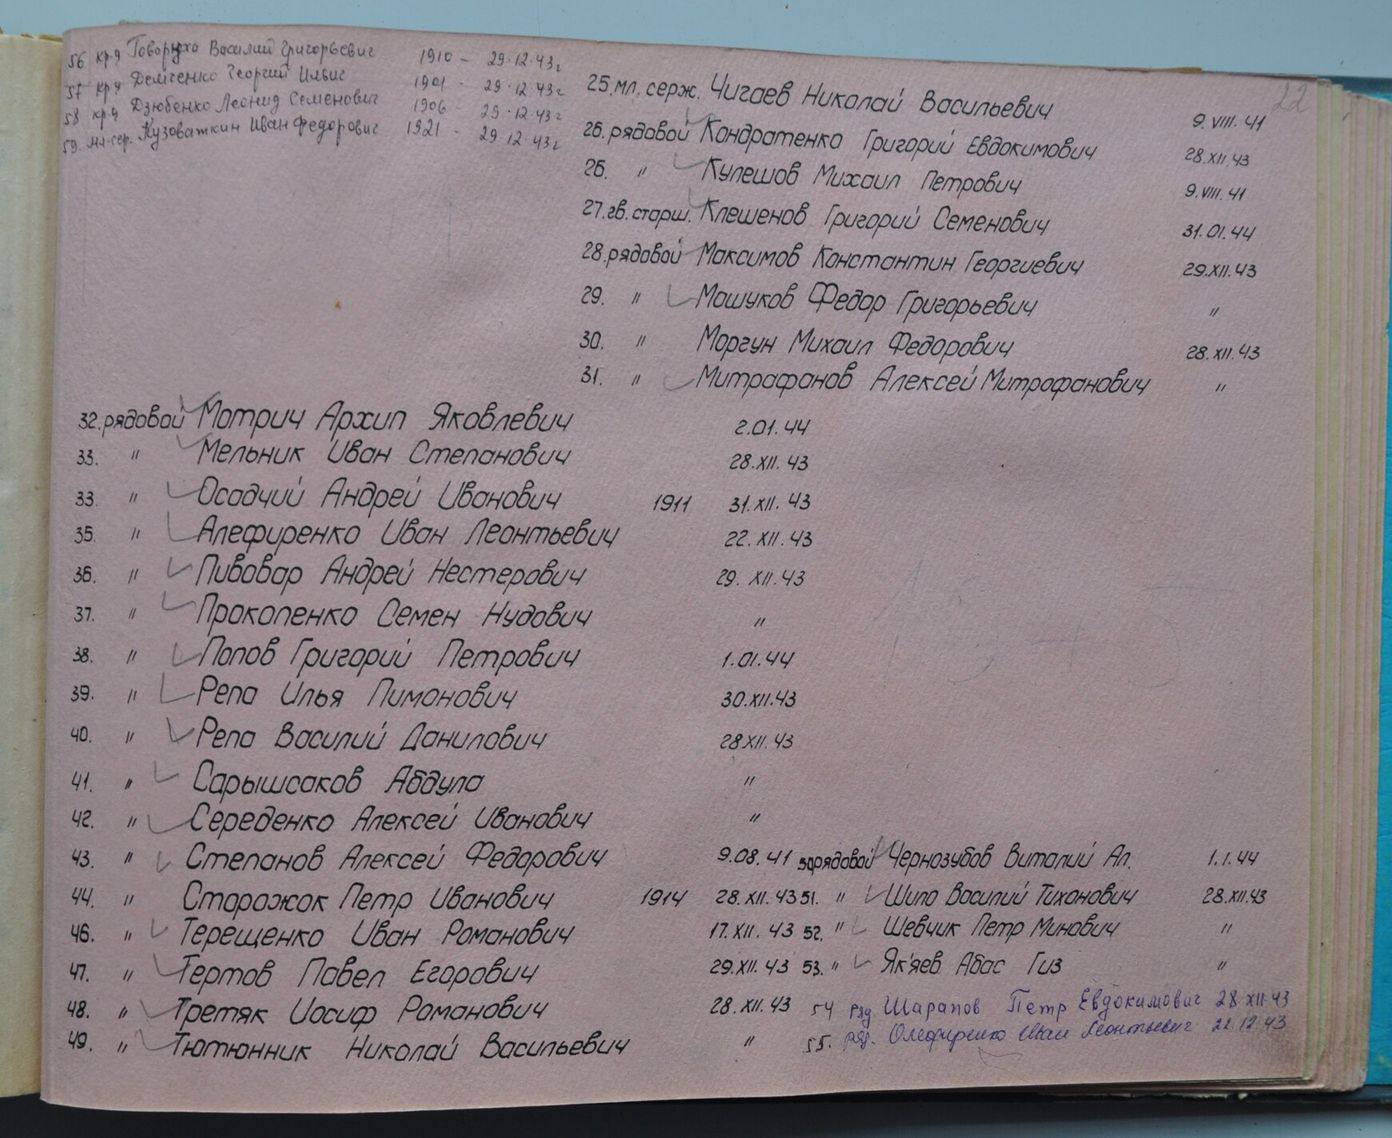 56 кр-ц Говоруха Василий Григорьевич 1910 - 29.12.43г
57 кр-ц Демченко Георгий Ильич 1901 - 29.12.43г
58 кр-ц Дзюбенко Леонид Семенович 1906 - 29.12.43г
59. мл-сер. Кузоваткин Иван Федорович 1921 - 29.12.43г
22
25. мл. серж. Чигаев Николай Васильевич 9.VIII.41
26. рядовой Кондратенко Григорий Евдокимович 28.XII.43
26. " Кулешов Михаил Петрович 9.VIII.41
27. гв. старш. Клешенов Григорий Семенович 31.01.44
28. рядовой Максимов Константин Георгиевич 29.XII.43
29. " Машуков Федор Григорьевич "
30. " Моргун Михаил Федорович 28.XII.43
31. " Митрафанов Алексей Митрофанович "
32. рядовой Мотрич Архип Яковлевич 2.01.44
33. " Мельник Иван Степанович 28.XII.43
33 " Осадчий Андрей Иванович 1911 31.XII.43
35. " Алефиренко Иван Леонтьевич 22.XII.43
36. " Пивовар Андрей Нестерович 29.XII.43
37. " Прокопенко Семен Нудович "
38. " Попов Григорий Петрович 1.01.44
39. " Репа Илья Пиманович 30.XII.43
40. " Репа Василий Данилович 28.XII.43
41. " Сарышсаков Абдула "
42. " Середенко Алексей Иванович "
43. " Степанов Алексей Федорович 9.08.41
44. " Сторожок Петр Иванович 1914 28.XII.43
46. " Терещенко Иван Романович 17.XII.43
47. " Тертов Павел Егорович 29.XII.43
48. " Третяк Иосиф Романович 28.XII.43
49. " Тютюнник Николай Васильевич "
50 рядовой Чернозубов Виталий Ал. 1.1.44
51. " Шило Василий Тихонович 28.XII.43
52. " Шевчик Петр Минович "
53. " Як'яев Абас Гиз "
54 ряд Шарапов Петр Евдокимович 28.XII.43
55. ряд. Олефиренко Иван Леонтьевич 22.12.43